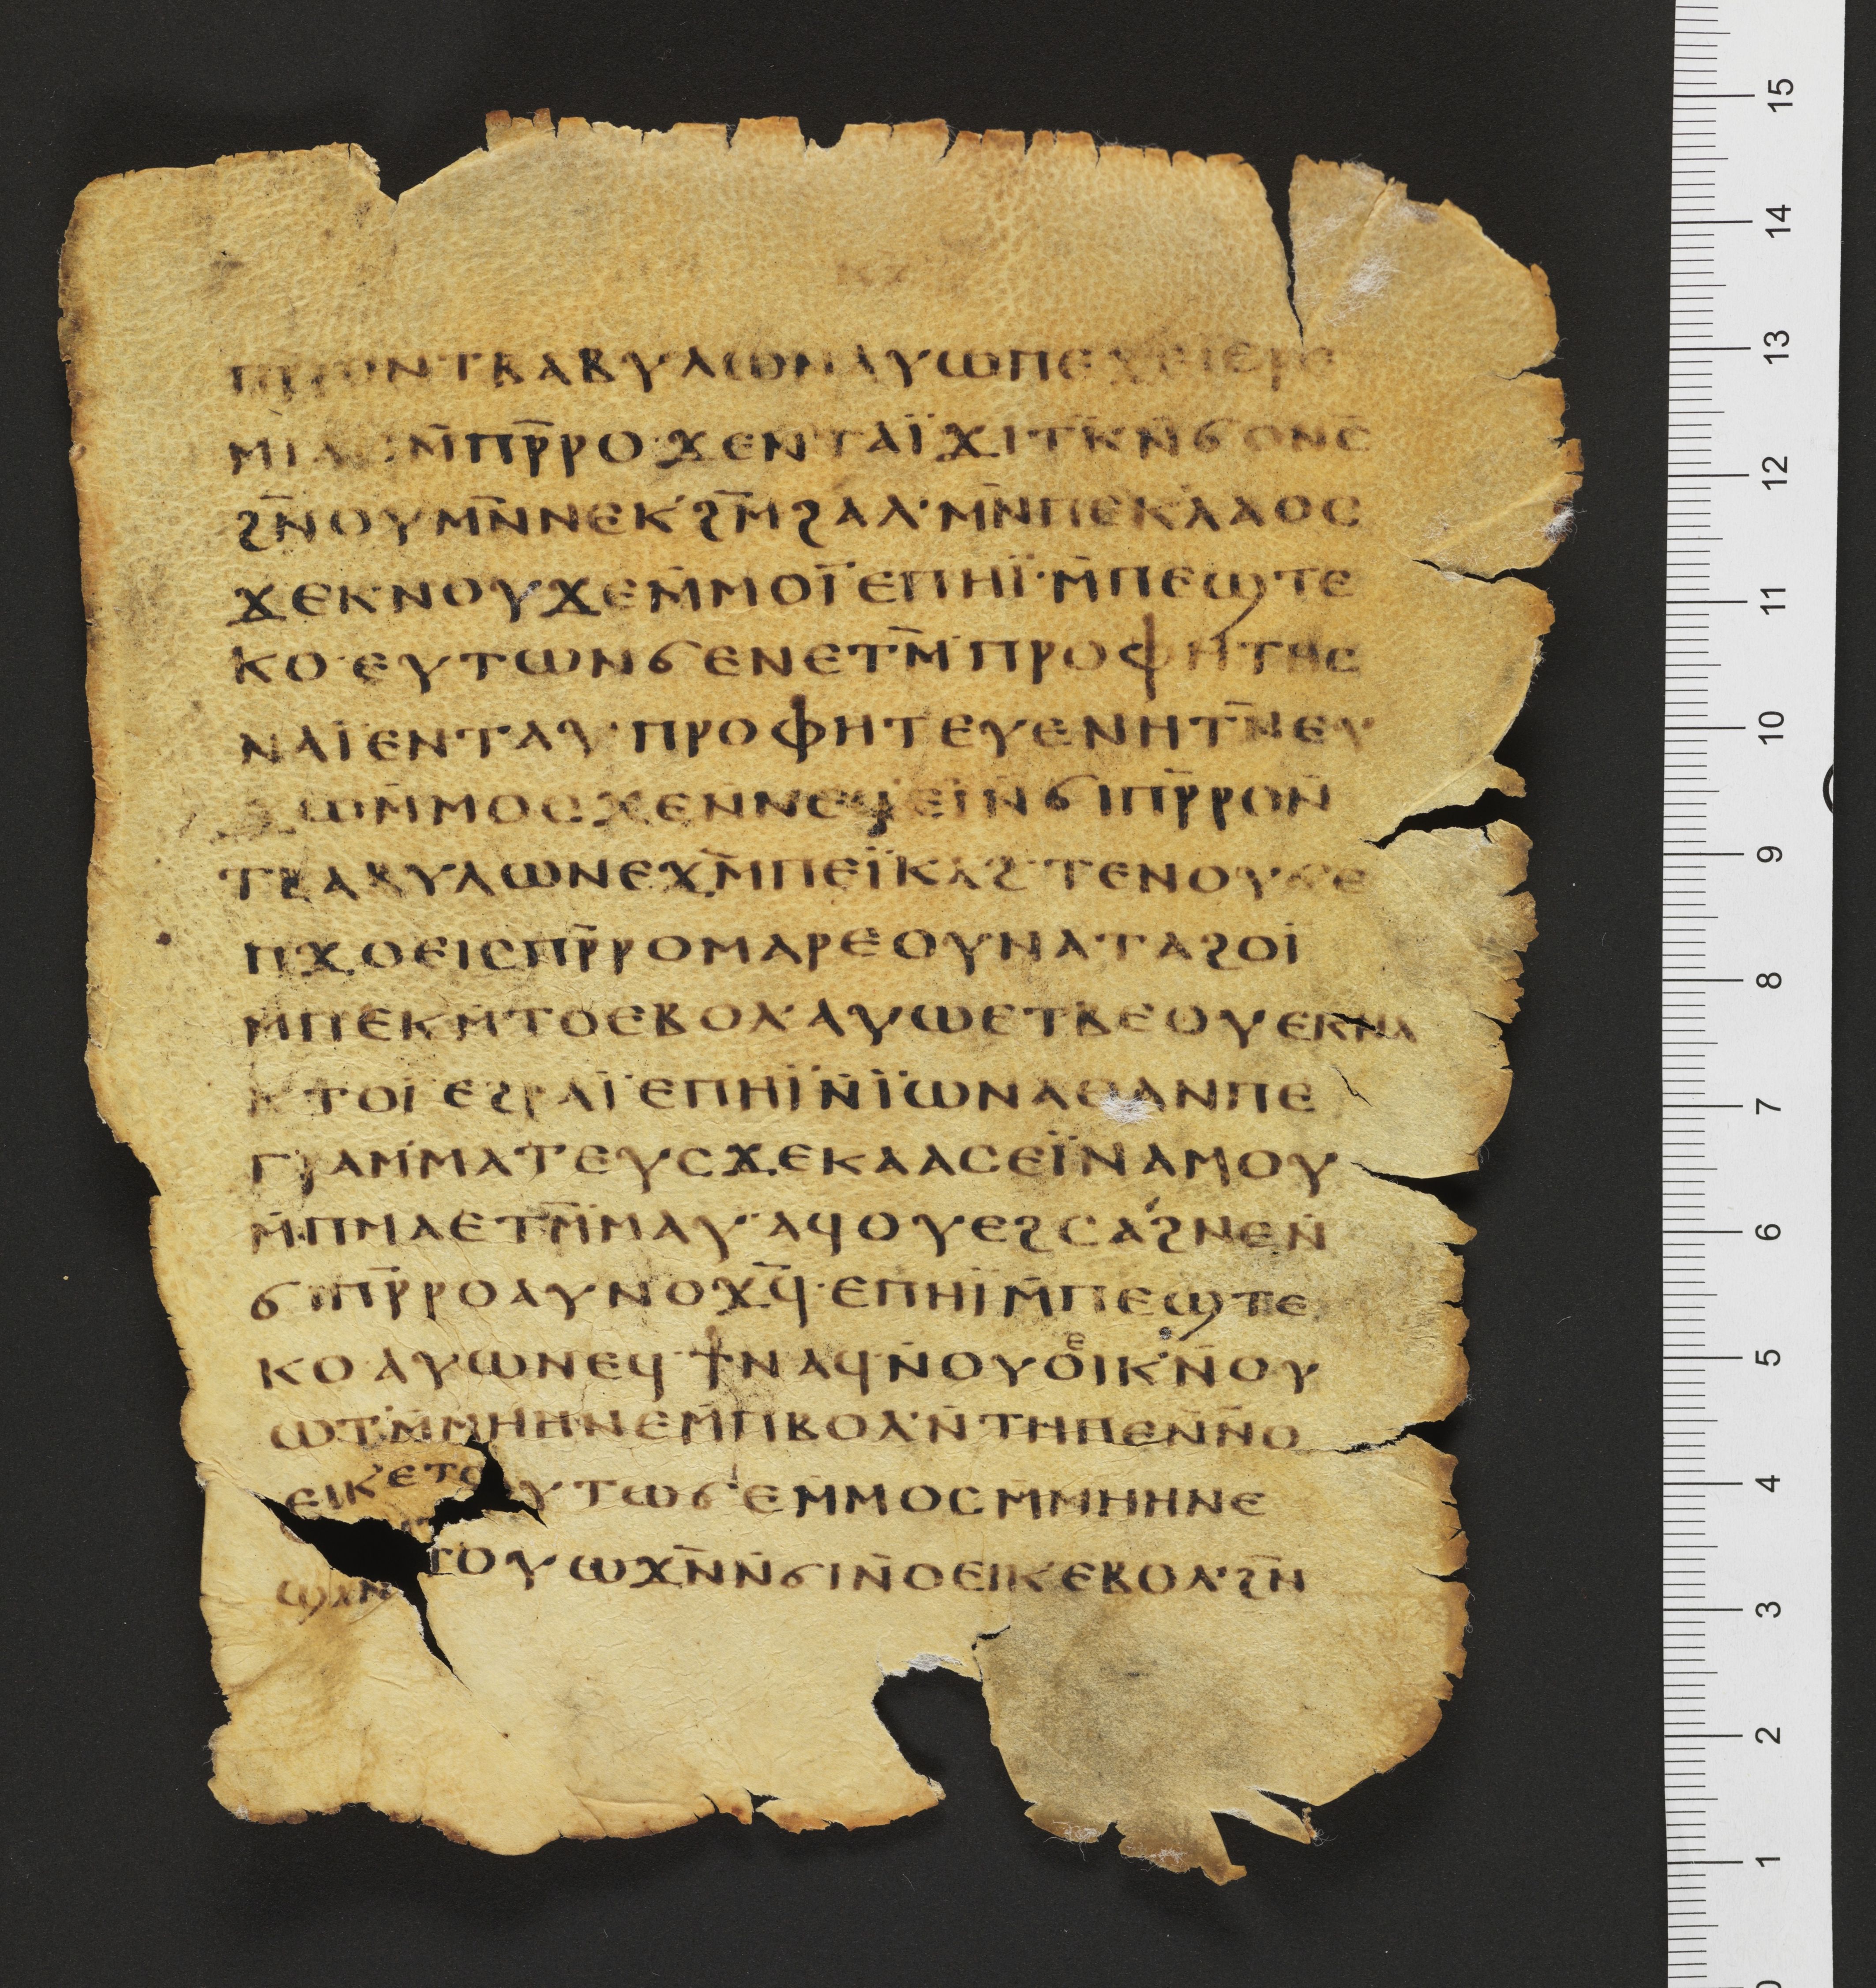 ⲡⲣ̅ⲣⲟⲛⲧⲃⲁⲃⲩⲗⲱⲛⲁⲩⲱⲡⲉϫⲉⲓⲉⲣⲉ
ⲙⲓⲁⲥⲙ̄ⲡⲣ̅ⲣⲟ·ϫⲉⲛⲧⲁⲓ̈ϫⲓⲧⲕ̄ⲛ̄ϭⲟⲛⲥ̄
ϩⲛ̄ⲟⲩⲙⲛ̄ⲛⲉⲕϩⲙ̄ϩⲁⲗ·ⲙⲛ̄ⲡⲉⲕⲗⲁⲟⲥ
ϫⲉⲕⲛⲟⲩϫⲉⲙ̄ⲙⲟⲓ̈ⲉⲡⲏⲓ̈·ⲙ̄ⲡⲉϣⲧⲉ
ⲕⲟ·ⲉⲩⲧⲱⲛϭⲉⲛⲉⲧⲙ̄ⲡⲣⲟⲫⲏⲧⲏⲥ
ⲛⲁⲓ̈ⲉⲛⲧⲁⲩ·ⲡⲣⲟⲫⲏⲧⲉⲩⲉⲛⲏⲧⲛ̄ⲉⲩ
ϫⲱⲙ̄ⲙⲟⲥϫⲉⲛ̄ⲛⲉϥⲉⲓⲛ̄ϭⲓⲡⲣ̅ⲣⲟⲛ̄
ⲧⲃⲁⲃⲩⲗⲱⲛⲉϫⲙ̄ⲡⲉⲓ̈ⲕⲁϩ·ⲧⲉⲛⲟⲩϭⲉ
ⲡϫⲟⲉⲓⲥⲡⲣ̅ⲣⲟⲙⲁⲣⲉⲟⲩⲛⲁⲧⲁϩⲟⲓ̈
ⲙⲡⲉⲕⲙ̄ⲧⲟⲉⲃⲟⲗ·ⲁⲩⲱⲉⲧⲃⲉⲟⲩⲉⲕⲛⲁ
ⲕⲧⲟⲓ̈ⲉϩⲣⲁⲓ̈ⲉⲡⲏⲓ̈ⲛ̄ⲓ̈ⲱⲛⲁⲑⲁⲛⲡⲉ
ⲅⲣⲁⲙⲙⲁⲧⲉⲩⲥϫⲉⲕⲁⲁⲥⲉⲓ̈ⲛⲁⲙⲟⲩ
ⲙ̄ⲡⲙⲁⲉⲧⲙ̄ⲙⲁⲩ·ⲁϥⲟⲩⲉϩⲥⲁϩⲛⲉⲛ̄
ϭⲓⲡⲣ̅ⲣⲟⲁⲩⲛⲟϫϥ̄·ⲉⲡⲏⲓ̈ⲙ̄ⲡⲉϣⲧⲉ
ⲕⲟⲁⲩⲱⲛⲉϥϯⲛⲁϥⲛ̄ⲟⲩⲟⲉⲓⲕⲛ̄ⲟⲩ
ⲱⲧⲙ̄ⲙⲏⲏⲛⲉⲙ̄ⲡⲃⲟⲗ·ⲛ̄ⲧⲏⲡⲉⲛ̄ⲛⲟ
ⲉⲓⲕⲉⲧⲟⲩⲧⲱϭⲉⲙ̄ⲙⲟⲥⲙⲙⲏⲏⲛⲉ
ϣⲁⲛⲧⲟⲩⲱϫⲛ̄ⲛ̄ϭⲓⲛ̄ⲟⲉⲓⲕⲉⲃⲟⲗ·ϩⲛ̄